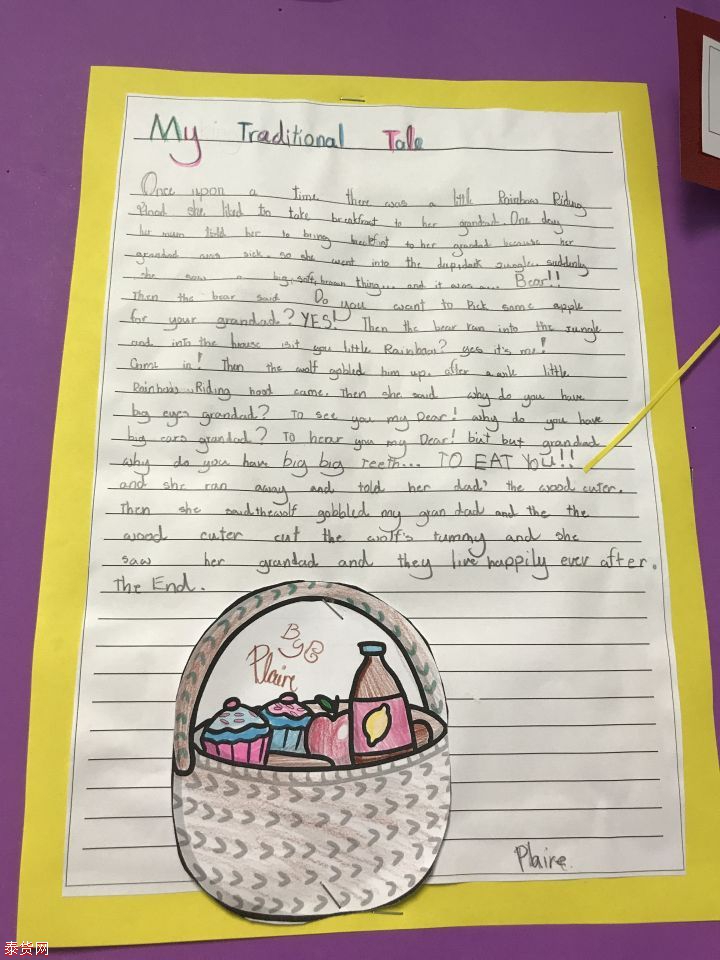 My Traditional Tale
Once upon a time there was a little Rainbow Riding
Hood she liked to take breakfast to her grandad. One day
her mum told her to bring breakfast to her grandad because her
grandad was sick. so she went into the deep,dark jungle. suddenly
she saw a big,soft,brown thing... and it was a... Bear!!
Then the bear said Do you want to Pick some apple
for your grandad? YES! Then the bear ran into the jungle
and into the house isit you little Rainbow? yes it's me!
Come in! Then the wolf gobled him up. after little
Rainbow Riding hood came. Then she said why do you have
big eyes grandad? To see you my Dear! why do you have
big ears grandad? To hear you my Dear! but but grandad
why do you have big big Teeth... TO EAT YOU!!
and she ran away and told her dad' the wood cuter.
Then she saidthewolf gobbled my gran dad and the the
wood cuter cut the wolf's tummy and she
saw her grandad and they live happily ever after.
the End.
By
Plaire
Plaire.
泰货网